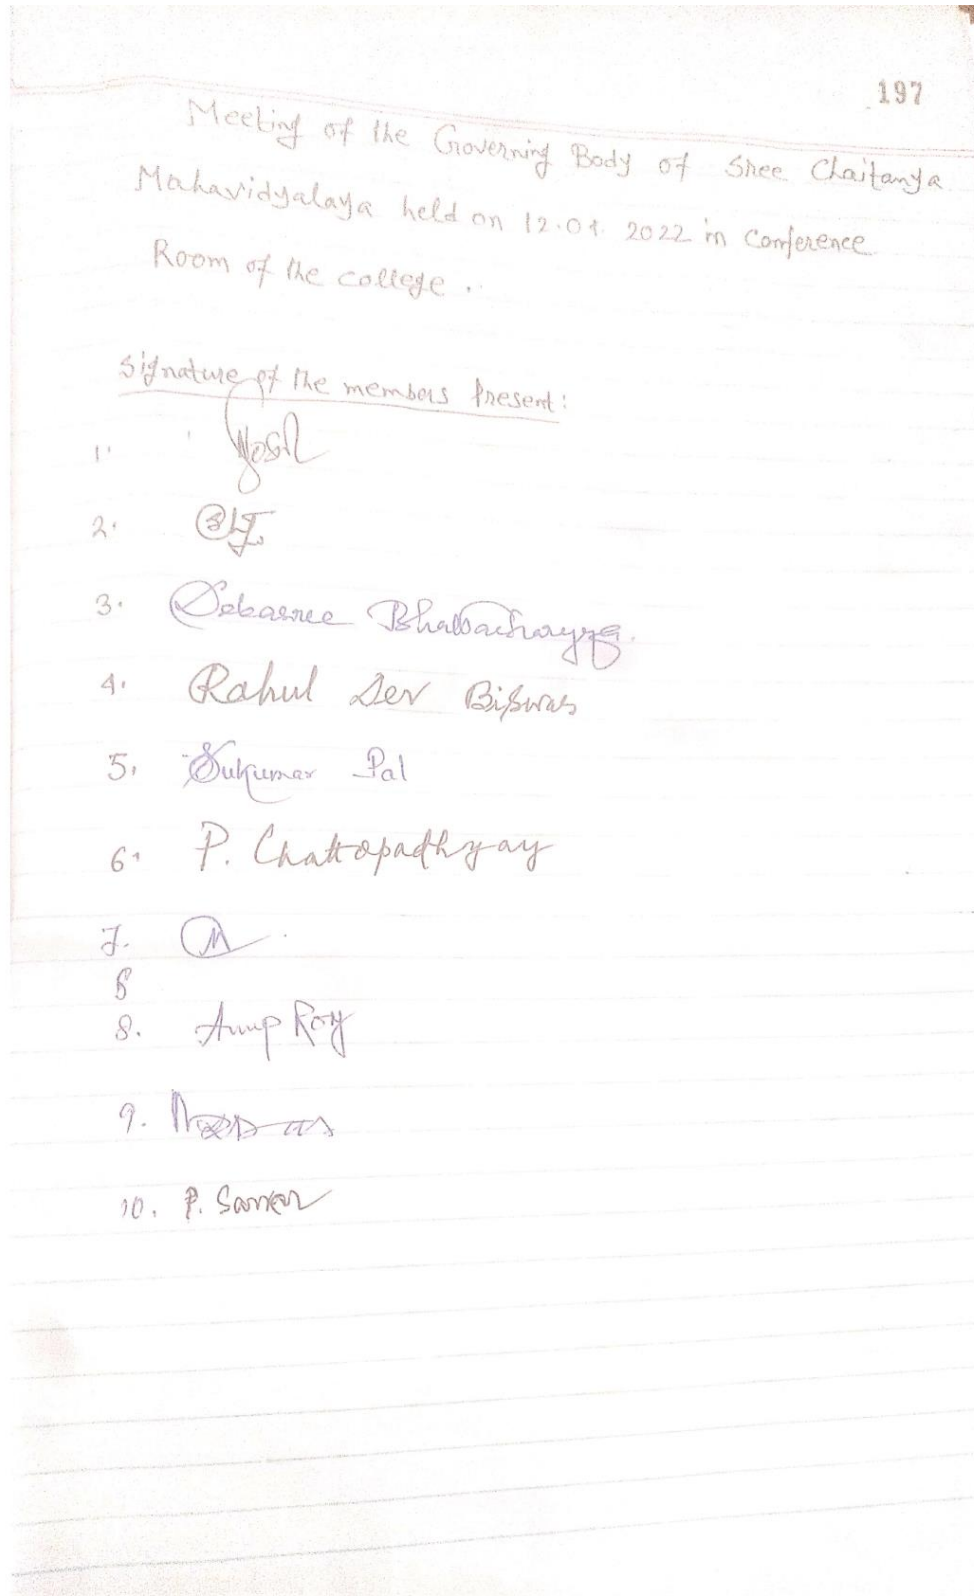 197
Meeting of the Governing Body of Shee Chaitanya
Mahavidyalaya held on 12.01.2022 in Conference
Room of the college.
Signature of the members Present:
1.
2.
3. Debasree Bhattacharyya.
4. Rahul Dev Biswas
5. Sukumar Pal
6. P. Chattopadhyay
7.
8
8. Anup Roy
9.
10. P. Sarker